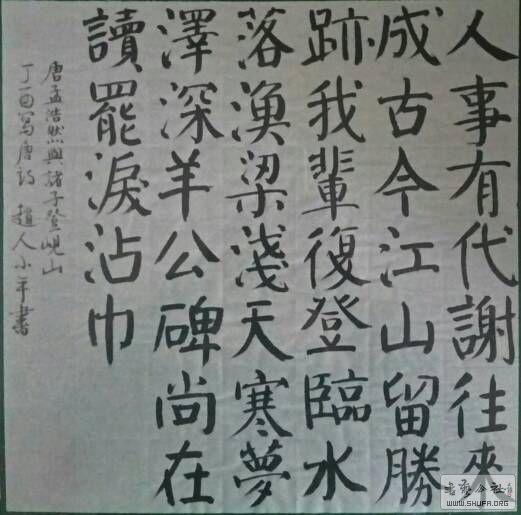 人事有代謝往來
成古今江山留勝
跡我輩復登臨水
落漁梁淺天寒夢
澤深羊公碑尚在
讀罷淚沾巾
唐孟浩然與諸子登峴山
丁酉寫唐詩 趙人小平書
WWW.SHUFA.ORG